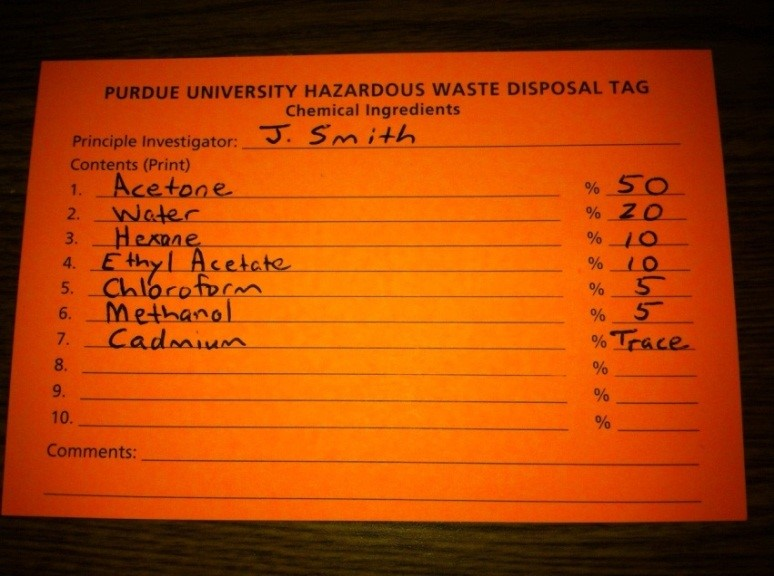 PURDUE UNIVERSITY HAZARDOUS WASTE DISPOSAL TAG
Chemical Ingredients
Principle Investigator: J. Smith
Contents (Print)
1. Acetone % 50
2. Water % 20
3. Hexane % 10
4. Ethyl Acetate % 10
5. Chloroform % 5
6. Methanol % 5
7. Cadmium % Trace
8. %
9. %
10. %
Comments: